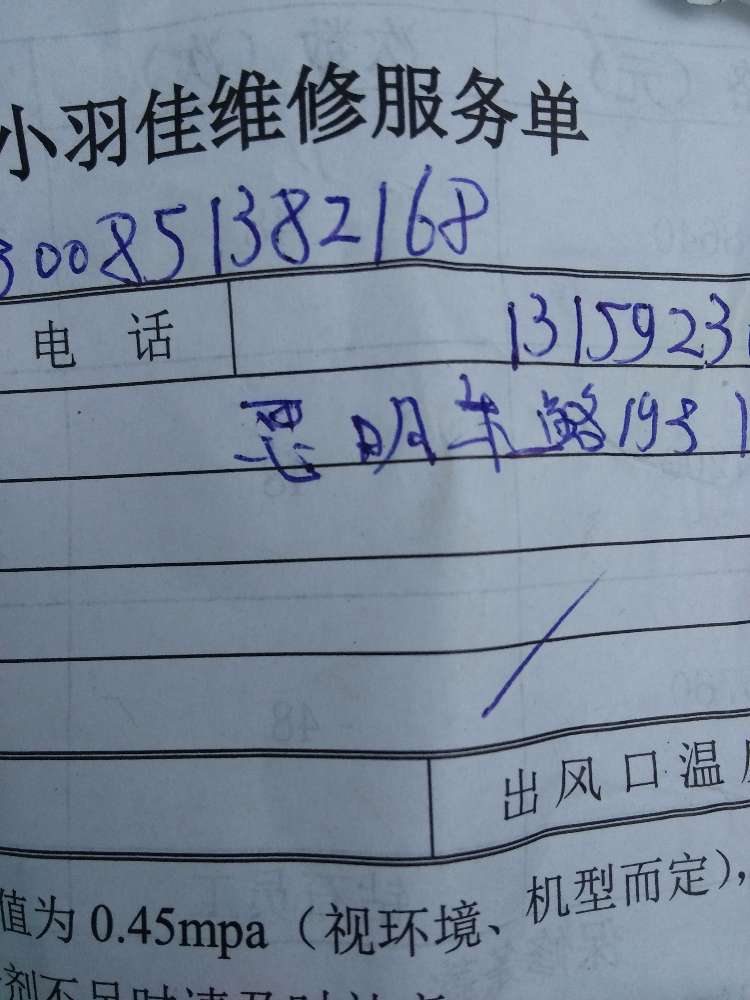 小羽佳维修服务单
300851382168
电 话 1315923
明东路193
出风口温
值为0.45mpa（视环境、机型而定），